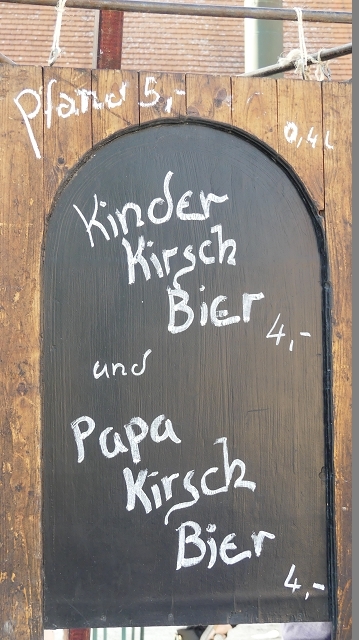 Pfand 5,-
0,4 L
Kinder
Kirsch
Bier
4,-
und
Papa
Kirsch
Bier
4,-